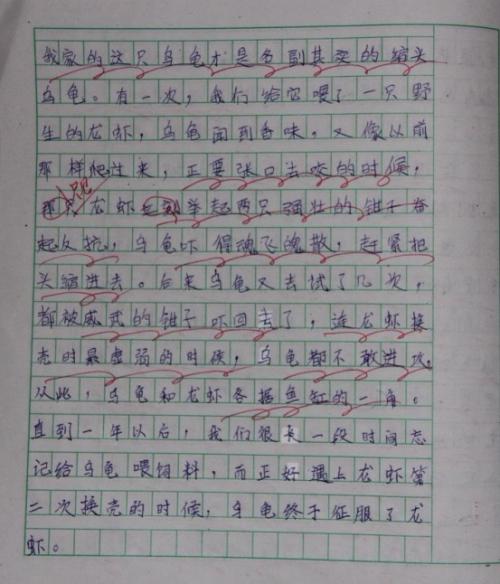 我家的这只乌龟才是名副其实的缩头
乌龟。有一次，我们给它喂了一只野
生的龙虾，乌龟闻到香味，又像以前
那样爬过来，正要张口去咬的时候，
只见
那只龙虾举起两只强壮的钳子奋
起反抗，乌龟吓得魂飞魄散，赶紧把
头缩进去。后来乌龟又去试了几次，
都被威武的钳子吓回去了，连龙虾换
壳时最虚弱的时候，乌龟都不敢进攻。
从此，乌龟和龙虾各据鱼缸的一角。
直到一年以后，我们很长一段时间忘
记给乌龟喂饲料，而正好遇上龙虾第
二次换壳的时候，乌龟终于征服了龙
虾。